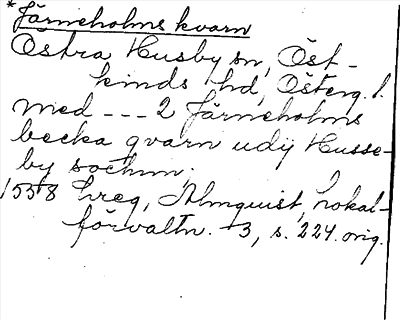 *Järneholms kvarn
Östra Husby sn, Öst-
kinds hd, Österg. l.
med --- 2 Järneholms
becka qvarn udij Husse-
by sochnn.
1558 hreg, Almquist, Lokal-
förvaltn. 3, s. 224. orig.